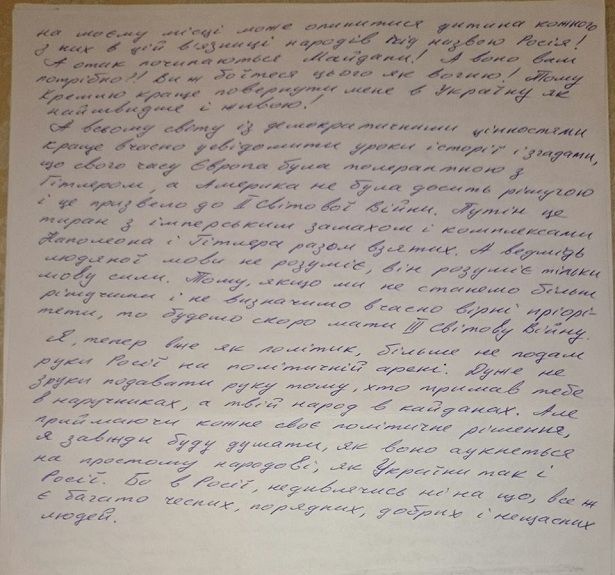 на моєму місці може опинитися дитина кожного
з них в цій в'язниці народів під назвою Росія!
А отак починаються Майдани! А воно вам
потрібно?!! Ви ж боїтеся цього як вогню! Тому
Кремлю краще повернути мене в Україну як
найшвидше і живою!
А всьому світу із демократичними цінностями
краще вчасно усвідомити уроки історії і згадати,
що свого часу Європа була толерантною з
Гітлером, а Америка не була досить рішучою
і це призвело до II Світової Війни. Путін це
тиран з імперським замахом і комплексами
Наполеона і Гітлера разом взятих. А ведмідь
людяної мови не розуміє, він розуміє тільки
мову сили. Тому, якщо ми не станемо більш
рішучими і не визначимо вчасно вірні пріорі-
тети, то будемо скоро мати III Світову Війну.
Я, тепер вже як політик, більше не подам
руки Росії на політичній арені. Дуже не
зруки подавати руку тому, хто тримав тебе
в наручниках, а твій народ в кайданах. Але
приймаючи кожне своє політичне рішення,
я завжди буду думати, як воно аукнеться
на простому народові, як України так і
Росії. Бо в Росії, недивлячись ні на що, все ж
є багато чесних, порядних, добрих і нещасних
людей.